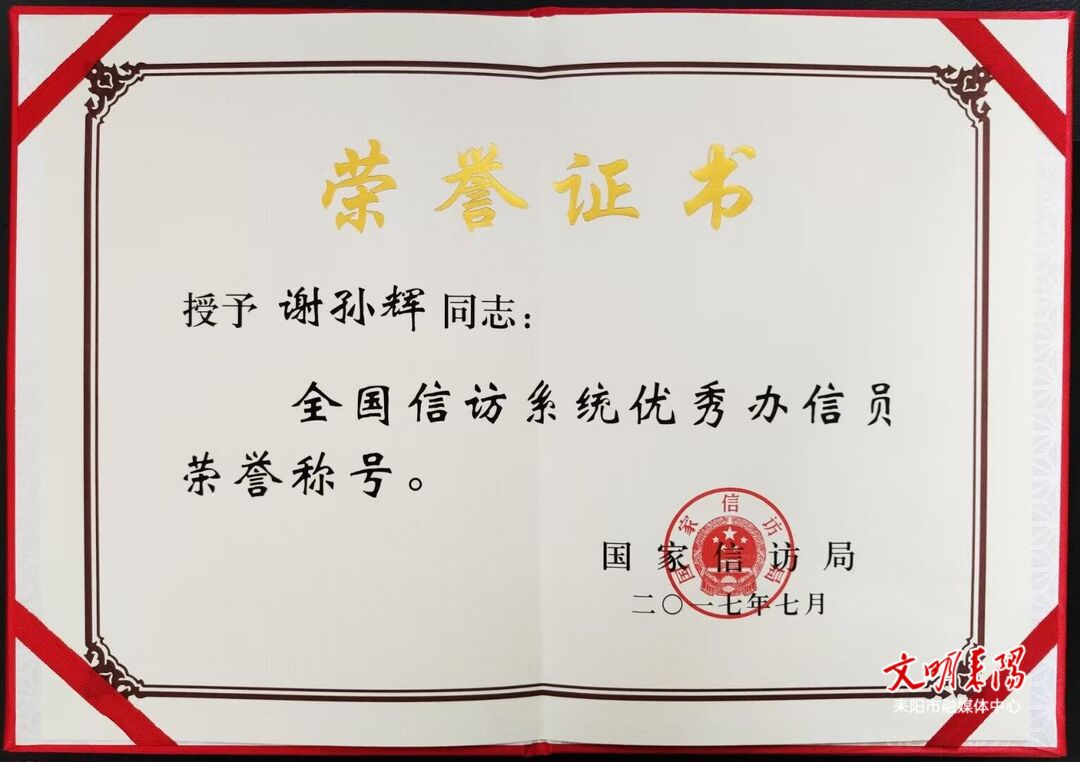 荣誉证书
授予 谢孙辉 同志：
全国信访系统优秀办信员
荣誉称号。
国家信访局
国家信访局
二〇一七年七月
文明耒陽
耒阳市融媒体中心